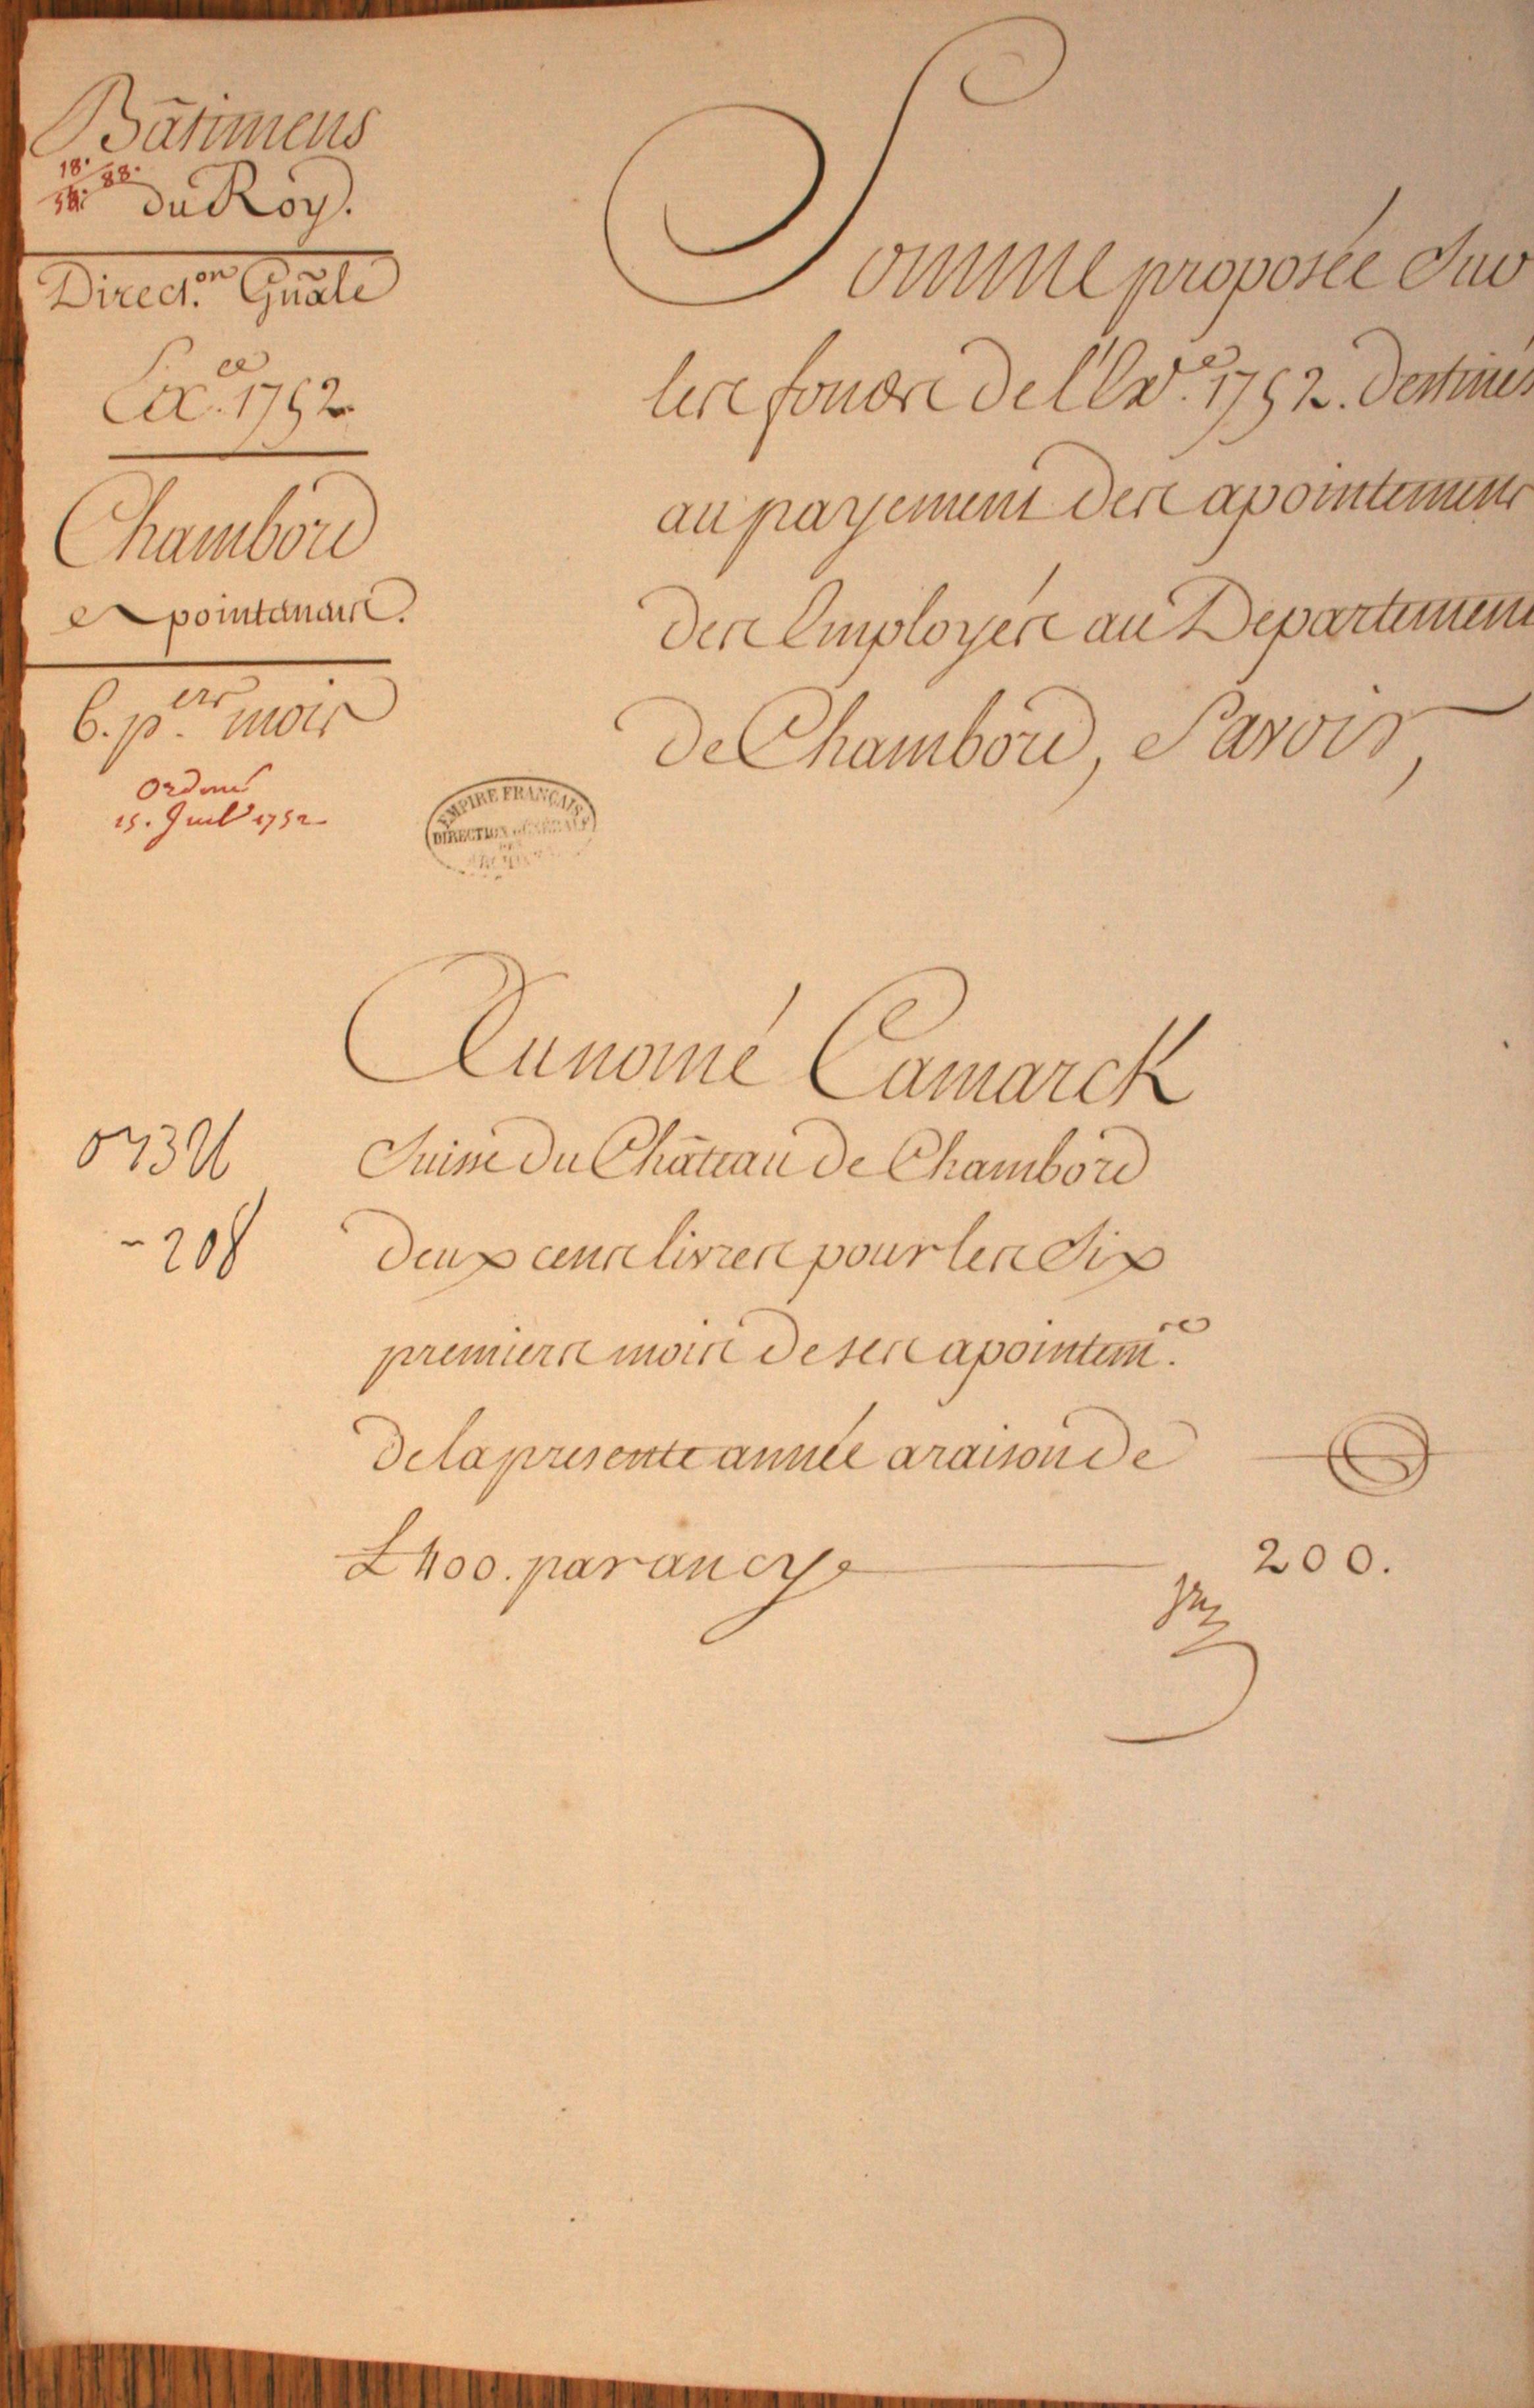 Bâtimens
18. 88.
du Roy.
Direct.on Gñale
Exce. 1752.
Chambord
apointemans.
6. p.ers mois
Ordoné
15. Juil 1752
Somme proposée Sur
les fonds de l'Exe. 1752. destinés
au payement des apointemens
des Employés au Departement
de Chambord, Savoir,
EMPIRE FRANÇAIS
DIRECTION GÉNÉRALE
DES
ARCHIVES
Au nomé Lamarck
Suisse du Château de Chambord
deux cens livres pour les Six
premiers mois de ses apointem.s
de la presente année a raison de
£ 400. par an cy
200.
208